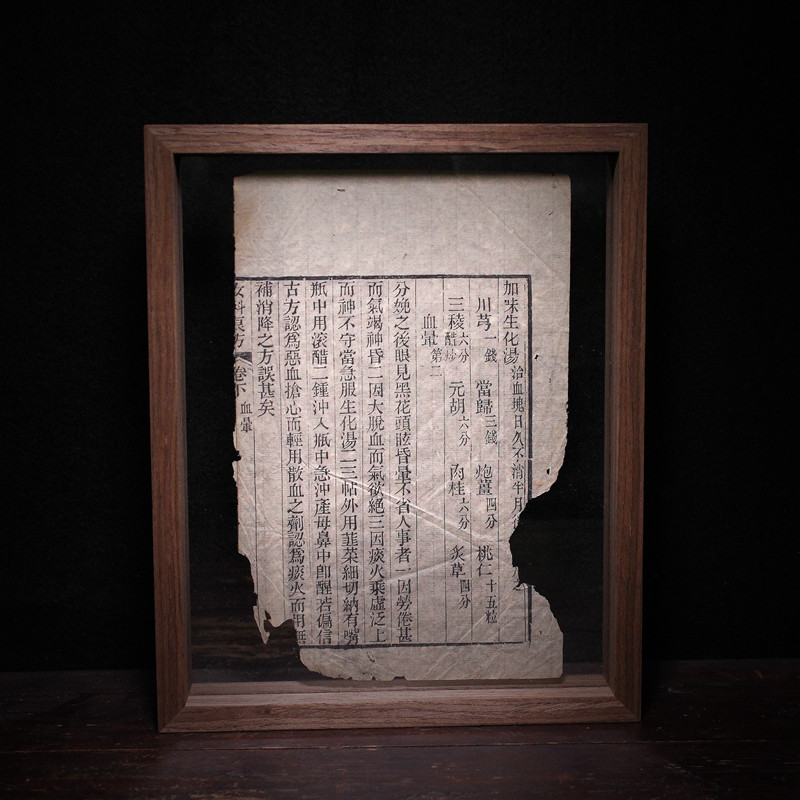 加味生化湯 治血塊日久不消半月後
川芎一錢 當歸三錢 炮薑四分 桃仁十五粒
三稜醋炒六分 元胡六分 肉桂六分 炙草四分
血暈 第二
分娩之後眼見黑花頭眩昏暈不省人事者一因勞倦甚
而氣竭神昏二因大脫血而氣欲絕三因痰火乘虛泛上
而神不守當急服生化湯二三帖外用韮菜細切納有嘴
瓶中用滾醋二鍾沖入瓶中急沖產母鼻中即醒若偏信
古方認爲惡血搶心而輕用散血之劑認爲痰火而用無
補消降之方誤甚矣
女科良方 卷下 血暈